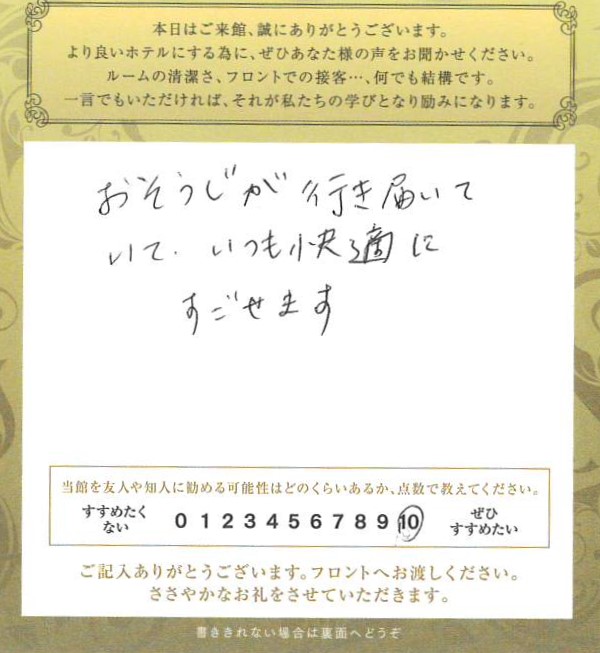 本日はご来館、誠にありがとうございます。
より良いホテルにする為に、ぜひあなた様の声をお聞かせください。
ルームの清潔さ、フロントでの接客…、何でも結構です。
一言でもいただければ、それが私たちの学びとなり励みになります。
おそうじが行き届いて
いて、いつも快適に
すごせます
当館を友人や知人に勧める可能性はどのくらいあるか、点数で教えてください。
すすめたく
ない
0 1 2 3 4 5 6 7 8 9 10
ぜひ
すすめたい
ご記入ありがとうございます。フロントへお渡しください。
ささやかなお礼をさせていただきます。
書ききれない場合は裏面へどうぞ